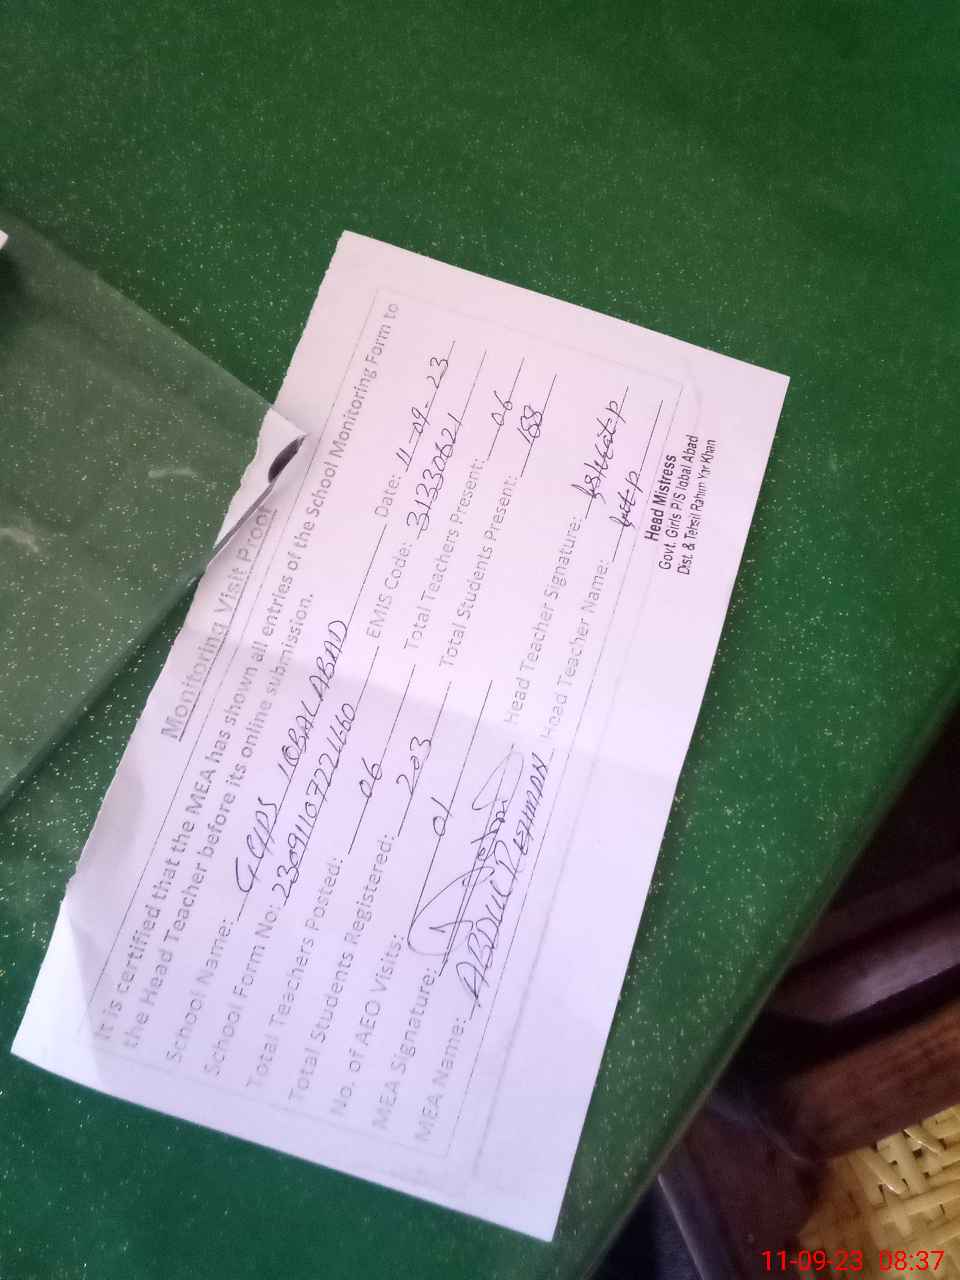 Monitoring Visit Proof
It is certified that the MEA has shown all entries of the School Monitoring Form to
the Head Teacher before its online submission.
School Name: GGPS IQBAL ABAD Date: 11-09-23
School Form No: EMIS Code: 31330621
Total Teachers Posted: 06 Total Teachers Present: 06
Total Students Registered: 203 Total Students Present: 168
No. of AEO Visits: 01
MEA Signature: Head Teacher Signature:
MEA Name: ABDUL REHMAN Head Teacher Name:
Head Mistress
Govt. Girls P/S Iqbal Abad
Dist. & Tehsil Rahim Yar Khan
11-09-23 08:37